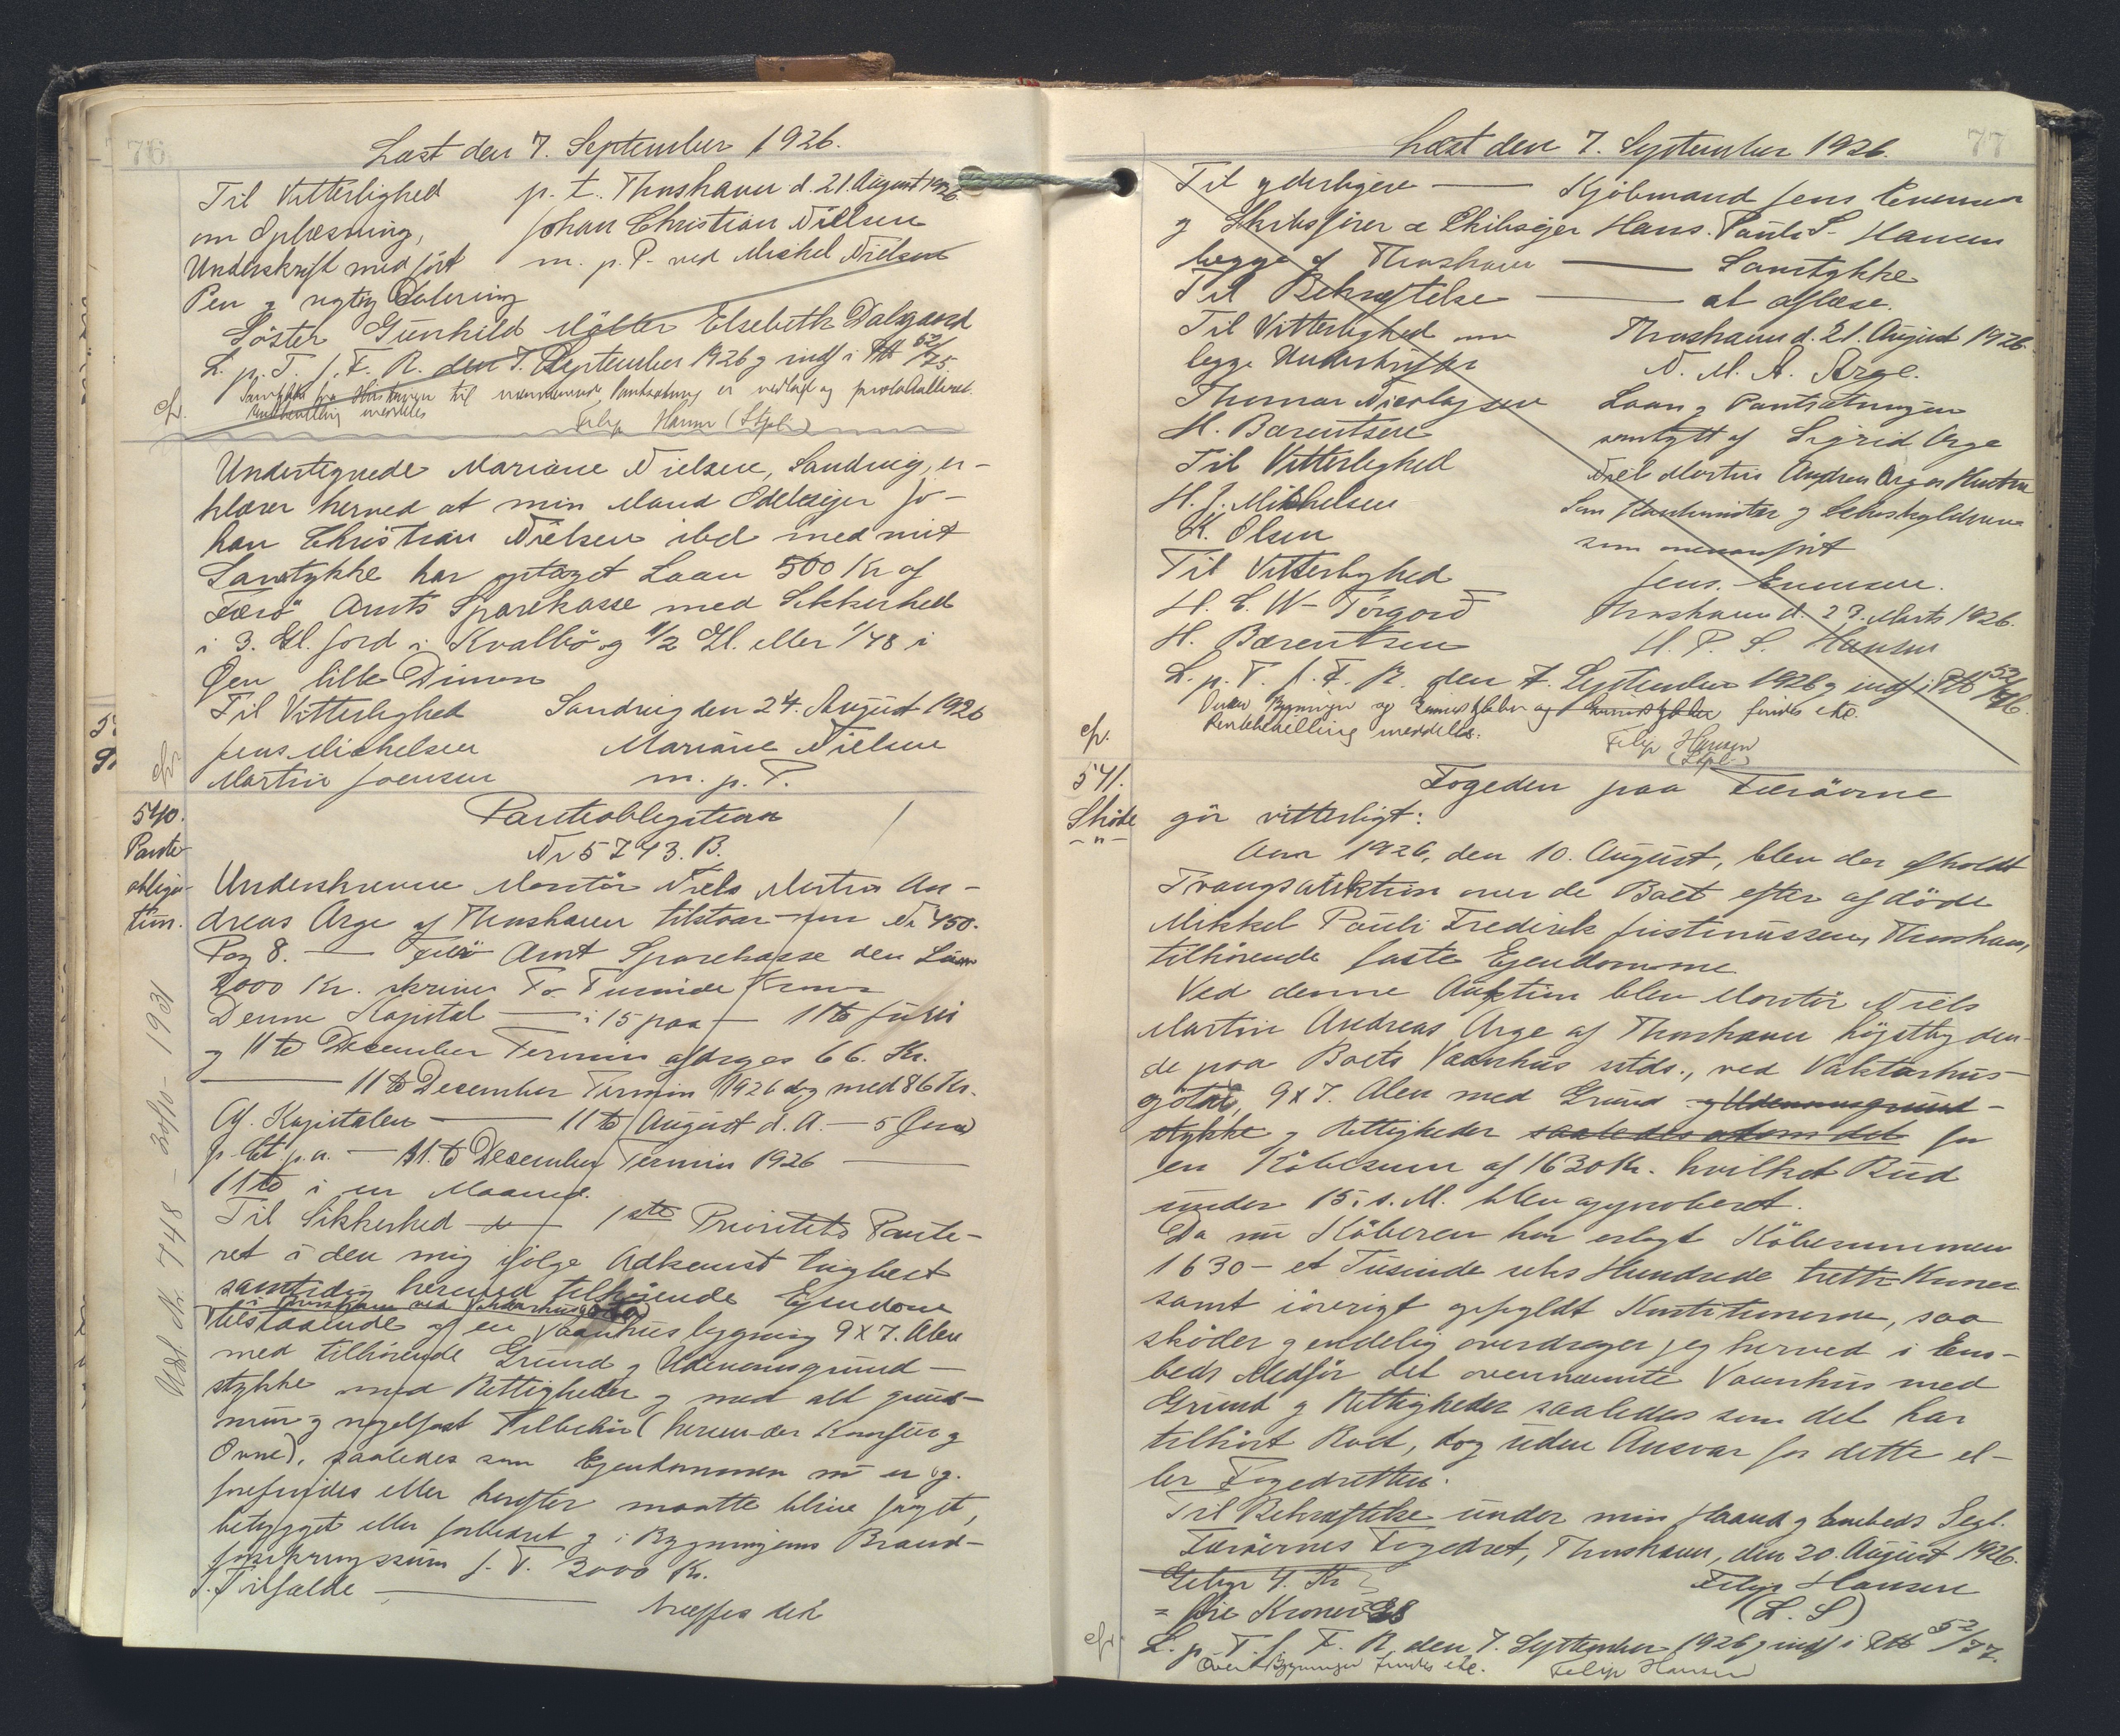 76
Læst den 7. September 1926.
Til Vitterlighed p. t. Thorshavn d. 21. August 1926.
om Oplæsning, Johan Christian Nielsen
Underskrift med ført m. p. P. ved Mickel Nielsen
Pen og rigtig Datering
Søster Gunhild Møller Elsebeth Dalsgaard
L. p. T. f. F. R. den 7. September 1926 g indf i Ptb 52/75.
Samtykke fra Hustruen til nærværende Pantsætning er vedlagt og protokolleret.
meddeles Filip Hansen (Stpl.)
Undertegnede Mariane Nielsen, Sandvig, er-
klærer herved at min Mand Odelsejer Jo-
han Christian Nielsen ibd med mit
Samtykke har optaget Laan 500 Kr af
Færø Amts Sparekasse med Sikkerhed
i 3. Gl. Jord i Kvalbø og 1/2 Gl. eller 1/48 i
Øen lille Dimon
Til Vitterlighed Sandvig den 24. August 1926
Jens Michelsen Mariane Nielsen
Martin Joensen m. p. P.
540. Panteobligation
Pante- Nr 5743. B.
obliga- Underskrevne Montør Niels Martin An-
tion. dreas Arge af Thorshavn tilstaar Nr 450.
Pag 8. — Færø Amt Sparekasse den Sum
2000 Kr. skriver To Tusinde Kroner
Denne Kapital — i 15 paa — 11te Juni
g 11te December Termin afdrages 66. Kr.
— 11te December Termin 1926 dog med 86 Kr.
Af Kapitalen — 11te August d. A. — 5 (fem)
p. Ct. p. a. — 11te December Termin 1926 —
11te i en Maaned.
Til Sikkerhed — 1ste Prioritets Pante-
ret i den mig ifølge Adkomst tinglæst
samtidig herved tilhørende Ejendom
i Thorshavn ved Vaktarhusgøta
bestaaende af en Vaanhusbygning 9 x 7. Alen
med tilhørende Grund g Udenomsgrund-
stykke med Rettigheder g med alt grund-
mur g nagelfast Tilbehør (herunder Komfur g
Ovne), saaledes som Ejendommen nu er og
forefindes eller herefter maatte blive
bebygget eller forbedret g i Bygningens Brand-
forsikringssum f. T. 3000 Kr.
I Tilfælde — træffes dek
Udsl Nr. 748 - 30/10 - 1931
77
Læst den 7. September 1926.
Til yderligere — Kjøbmand Jens Evensen
g Skibsfører & Skibsejer Hans. Pauli S. Hansen
begge af Thorshavn — Samtykke
Til Bekræftelse — at aflæse.
Til Vitterlighed om Thorshavn d. 21. August 1926.
begge Underskrifter N. M. A. Arge.
Thomas Nicolajsen Laan g Pantsætningen
H. Bærentsen samtykt af Sigrid Arge
Til Vitterlighed Niels Martin Andreas Arges Hustru
H. J. Mikkelsen Som Kautionister g Selvskyldnere
K. Olsen som ovenanført
Til Vitterlighed Jens. Evensen.
H. C. W. Tórgarð Thorshavn d. 23. Marts 1926.
H. Bærentsen H. P. S. Hansen
L. p. T. f. F. R. den 7. September 1926 g indf i Ptb 52/76.
Over Bygninger og findes etc.
meddeles. Filip Hansen
(Stpl.)
541. Fogeden paa Færøerne
Skøde gør vitterligt:
- " - Aar 1926, den 10. August, blev der afholdt
Tvangsauktion over de Boet efter afdøde
Mikkel Pauli Frederik Justinussen, Thorshavn,
tilhørende faste Ejendomme
Ved denne Auktion blev Montør Niels
Martin Andreas Arge af Thorshavn højstbyden-
de paa Boets Vaanhus sstds., ved Vaktarhus-
gøta, 9 x 7. Alen med Grund g Udenomsgrund-
stykke g Rettigheder saaledes som det for
en Købesum af 1630 Kr. hvilket Bud
under 15. s. M. blev approberet.
Da nu Køberen har erlagt Købesummen
1630 - et Tusinde seks Hundrede tretti Kroner
samt iøvrigt opfyldt Konditionerne, saa
skøder g endelig overdrager jeg herved i Em-
beds Medfør det ovennævnte Vaanhus med
Grund g Rettigheder saaledes som det har
tilhørt Boet, dog uden Ansvar for dette el-
ler Fogedretten.
Til Bekræftelse under min Haand g Embeds Segl.
Færøernes Fogedret, Thorshavn, den 20. August 1926.
Gebyr 4. Kr Filip Hansen
= fire Kroner (L. S)
L. p. T. f. F. R. den 7. September 1926 g indf i Ptb 52/77.
Over Bygninger findes etc. Filip Hansen